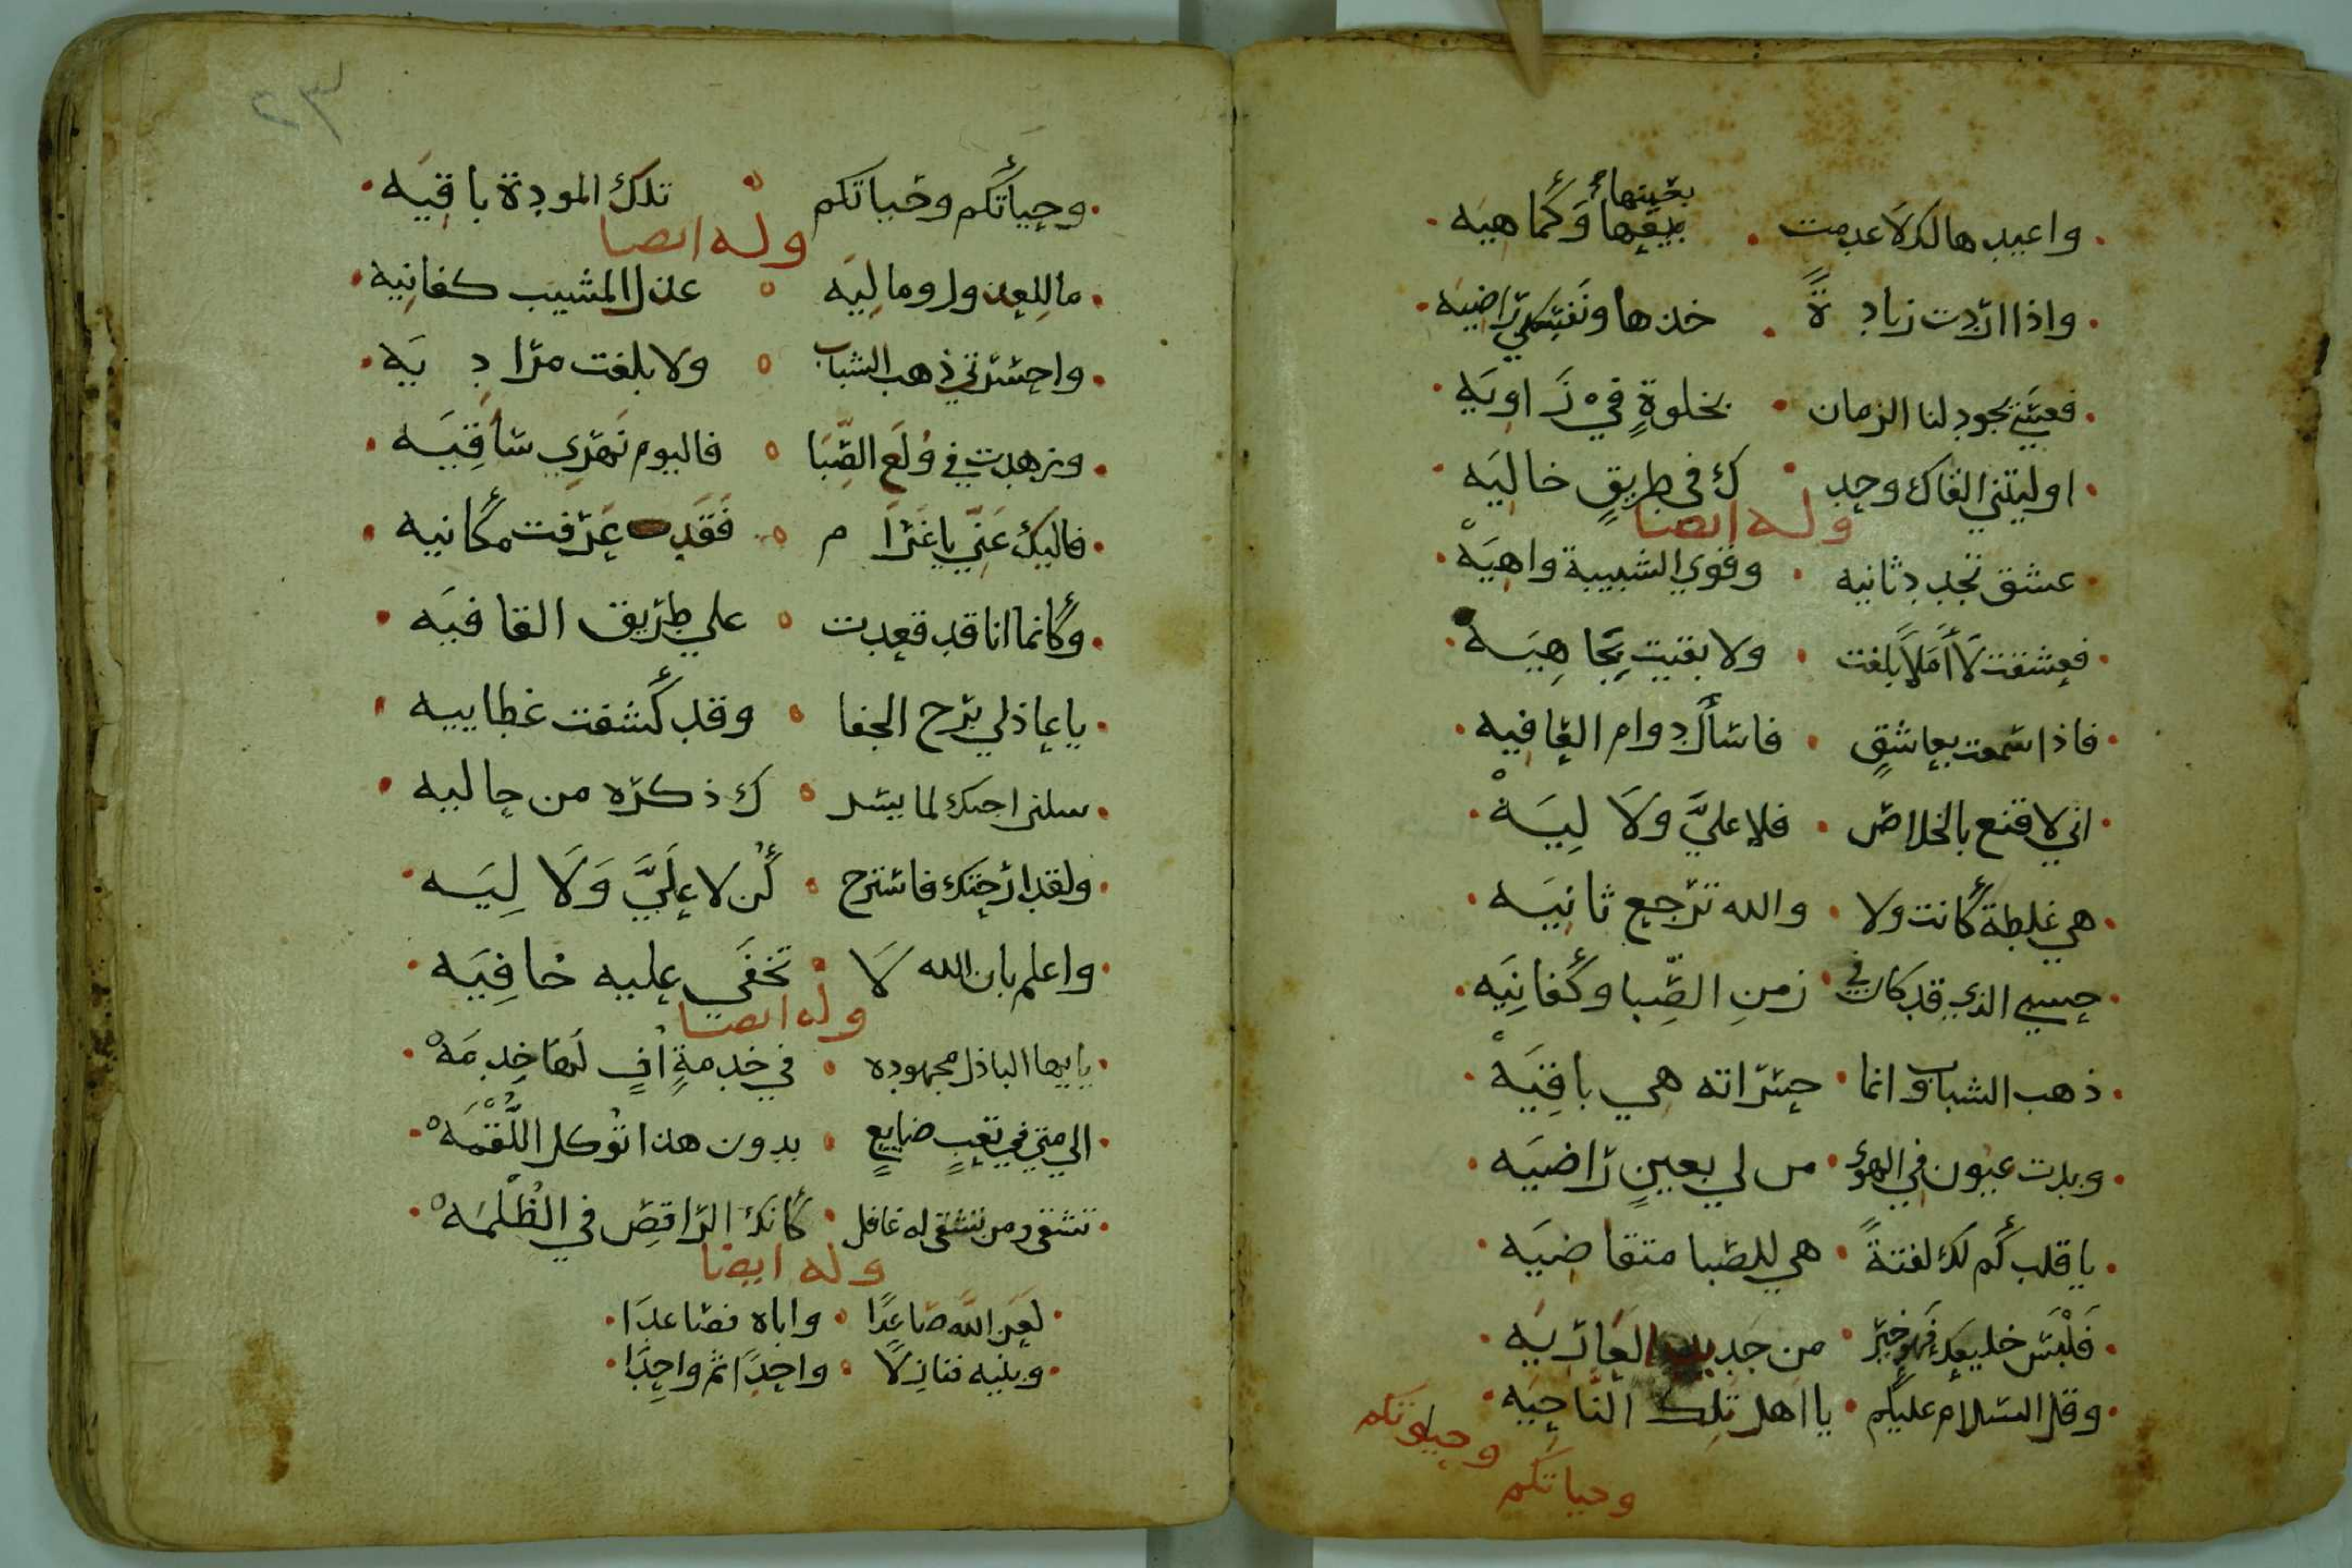 واعيدها لك لا عدمت بعينها وكما هيه
بعينها
واذا اردت زيادة خذها ونفسي راضيه
فعسى يجود لنا الزمان بخلوةٍ في زاويه
او ليتني القاك وحدك في طريقٍ خاليه
وله ايضا
عشق تجدد ثانيه وقوي الشبيبة واهيه
فعشقت لا أملاً بلغت ولا بقيت بجاهيه
فاذا سمعت بعاشقٍ فاسأل دوام العافيه
اني لاقنع بالخلاص فلا عليَّ ولا ليه
هي غلطة كانت ولا والله ترجع ثانيه
حسبي الذي قد كان في زمنِ الصِّبا وكفانيه
ذهب الشباب وانما حسراته هي باقيه
وبدت عيون في الهوى من لي بعينٍ راضيه
يا قلب كم لك لفتةً هي للصبا متقاضيه
فلبس خليعك فهو خير من جديد العاريه
وقل السلام عليكم يا اهل تلك الناحيه
وحياتكم
وحياتكم
٢٣
وحياتكم وحياتكم تلك المودة باقيه
وله ايضا
ما للعذول وما ليه عذل المشيب كفانيه
واحسرتي ذهب الشباب ولا بلغت مراديه
وزهدت في ولع الصِّبا فاليوم نهري ساقيه
فاليك عني يا غرام فقد عرفت مكانيه
وكانما انا قد قعدت علي طريق القافيه
يا عاذلي برح الجفا وقد كشفت غطاييه
سلني اجبك لما يسرك ذكره من حاليه
ولقد ارحتك فاسترح كن لا عليَّ ولا ليه
واعلم بان الله لا تخفى عليه خافيه
وله ايضا
يا ايها الباذل مجهوده في خدمةٍ افٍ لها خدمه
الي متي في تعبٍ ضايعٍ بدون هذا توكل اللُّقمه
تشقى ومن تشقى له غافل كانك الراقص في الظُلمه
وله ايضا
لعن الله صاعدًا واباه فصاعدا
وبنيه فنازلا واحدًا ثم واحدا